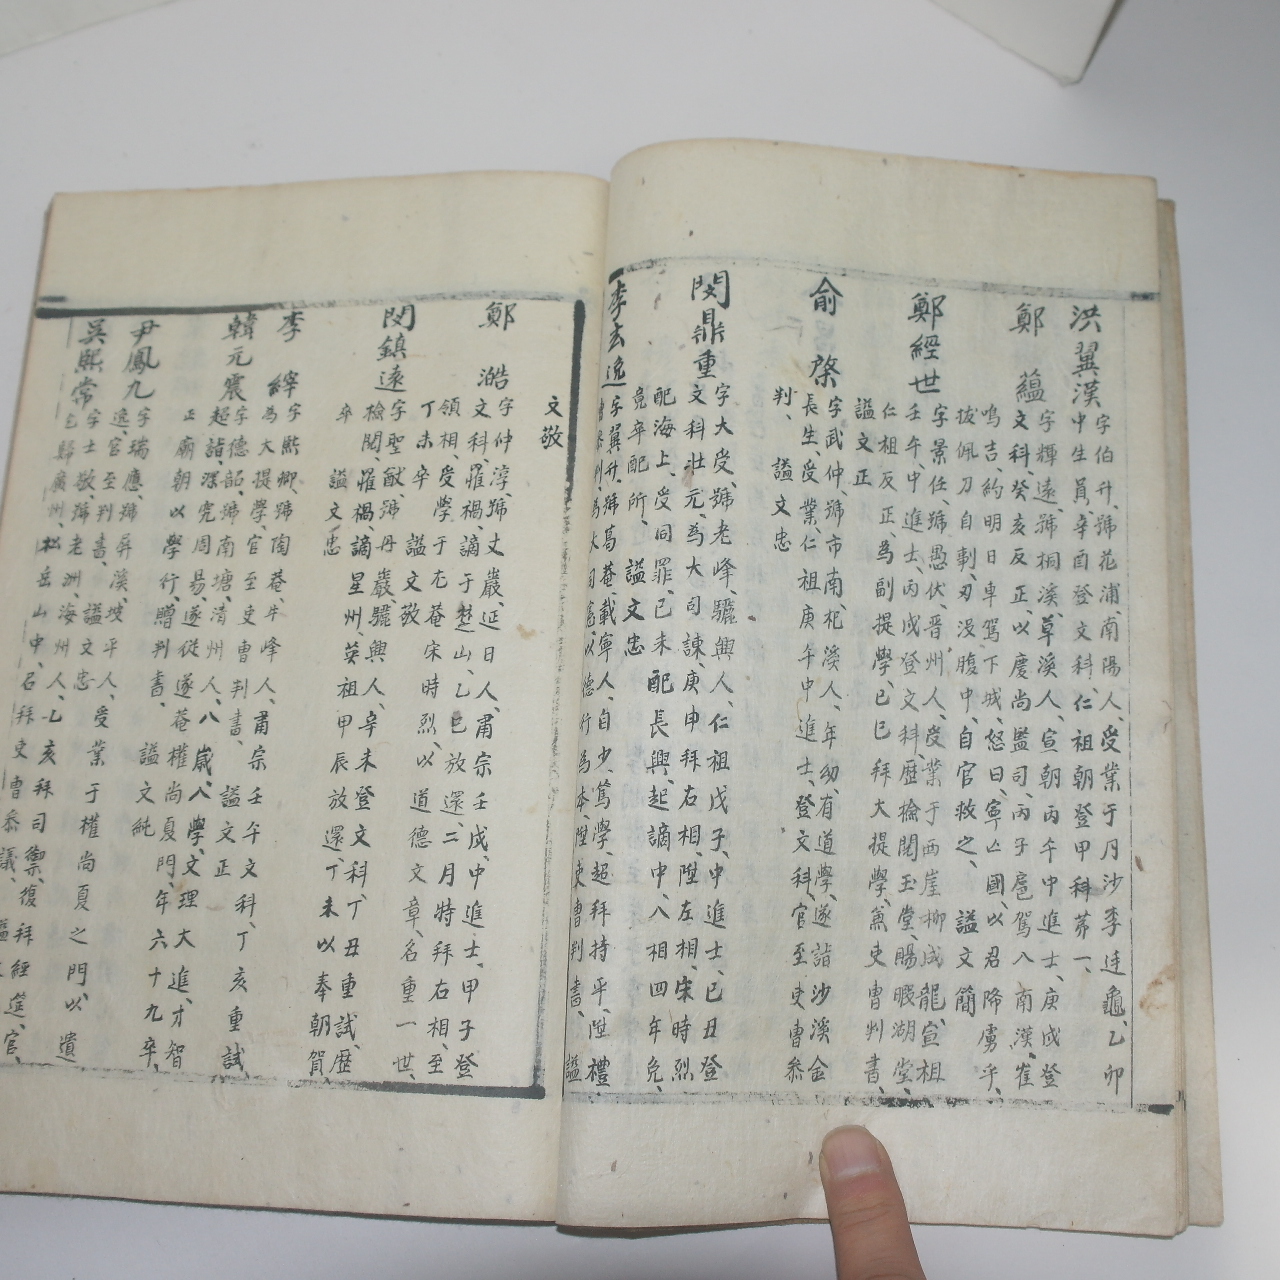 洪翼漢 字伯升、號花浦、南陽人、受業于月沙李廷龜、乙卯
中生員、辛酉登文科、仁祖朝登甲科第一、
鄭 蘊 字輝遠、號桐溪、草溪人、宣朝丙午中進士、庚戌登
文科、癸亥反正、以慶尚監司、丙子扈駕入南漢、崔
鳴吉、約明日車駕下城、怒曰、寧亡國、以君降虜乎、
拔佩刀自剚、刃沒腹中、自官救之、 謚文簡
鄭經世 字景任、號愚伏、晋州人、受業于西崖柳成龍、宣祖
壬午、中進士、丙戌登文科、歷檢閱玉堂、賜暇湖堂、
仁祖反正、為副提學、己巳拜大提學、兼吏曹判書、
謚文正
俞 棨 字武仲、號市南、杞溪人、年幼、有道學、遂詣沙溪金
長生、受業、仁祖庚午中進士、登文科、官至吏曹叅
判、 謚文忠
閔鼎重 字大受、號老峰、驪興人、仁祖戊子、中進士、己丑登
文科壯元、為大司諫、庚申拜右相、陞左相、宋時烈
配海上、受同罪、己未配長興、起謫中、入相四年免、
竟卒配所、 謚文忠
李玄逸 字翼升、號葛菴、載寧人、自少、篤學超拜持平、陞禮
曹叅判、為大司憲、以德行為本、陞吏曹判書、 謚
文敬
鄭 澔 字仲淳、號丈巖、延日人、肅宗壬戌、中進士、甲子登
文科、罹禍、謫于楚山、乙巳放還、二月特拜右相、至
領相、受學于尤菴宋時烈、以道德文章、名重一世、
丁未卒 謚文敬
閔鎮遠 字聖猷、號丹巖、驪興人、辛未登文科、丁丑重試、歷
檢閱、罹禍、謫星州、英祖甲辰放還、丁未以奉朝賀、
卒 謚文忠
李 縡 字熙卿、號陶菴、牛峰人、肅宗壬午文科、丁亥重試、
為大提學、官至吏曹判書、 謚文正
韓元震 字德昭、號南塘、清州人、八歲、入學、文理大進、才智
超詣、深究周易、遂從遂菴權尚夏門、年六十九卒、
正廟朝以學行、贈判書、 謚文純
尹鳳九 字瑞應、號屏溪、坡平人、受業于權尚夏之門、以遺
逸、官至判書、 謚文忠
吳熙常 字士敬、號老洲、海州人、乙亥拜司禦、復拜經筵官、
乞歸廣州、松岳山中、召拜吏曹叅議、